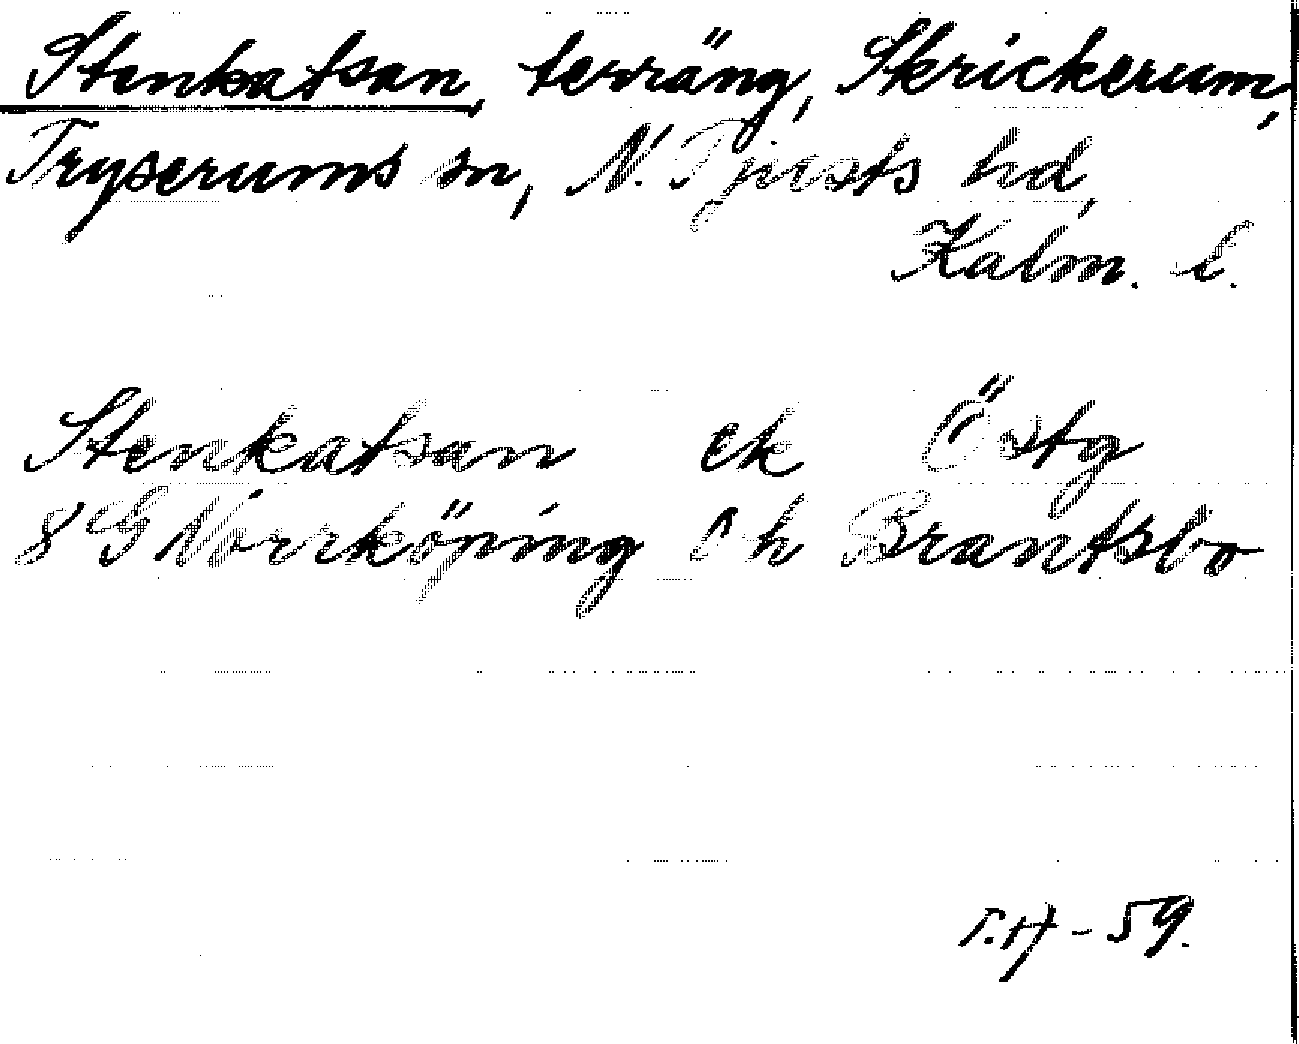 Stenkatsan, terräng, Skrickerum,
Tryserums sn, N. Tjusts hd,
Kalm. l.
Stenkatsan ek Östg
8G Norrköping Bran​tsbo
T.H - 59.